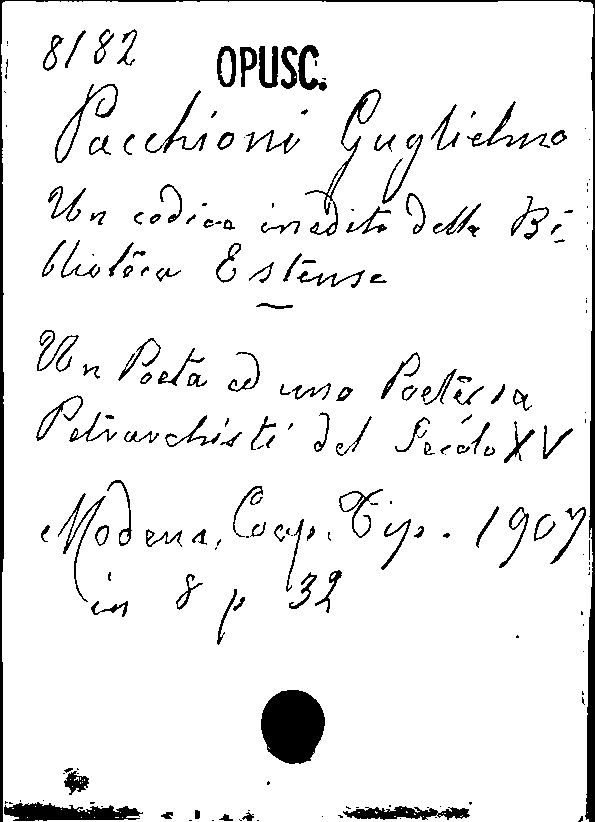 8182
OPUSC.
Pacchioni Guglielmo
Un codice inedito della Bi-
blioteca Estense
Un Poeta ed una Poetessa
Petrarchisti del Secolo XV
Modena, Coop. Tip. 1907
in 8 p 32